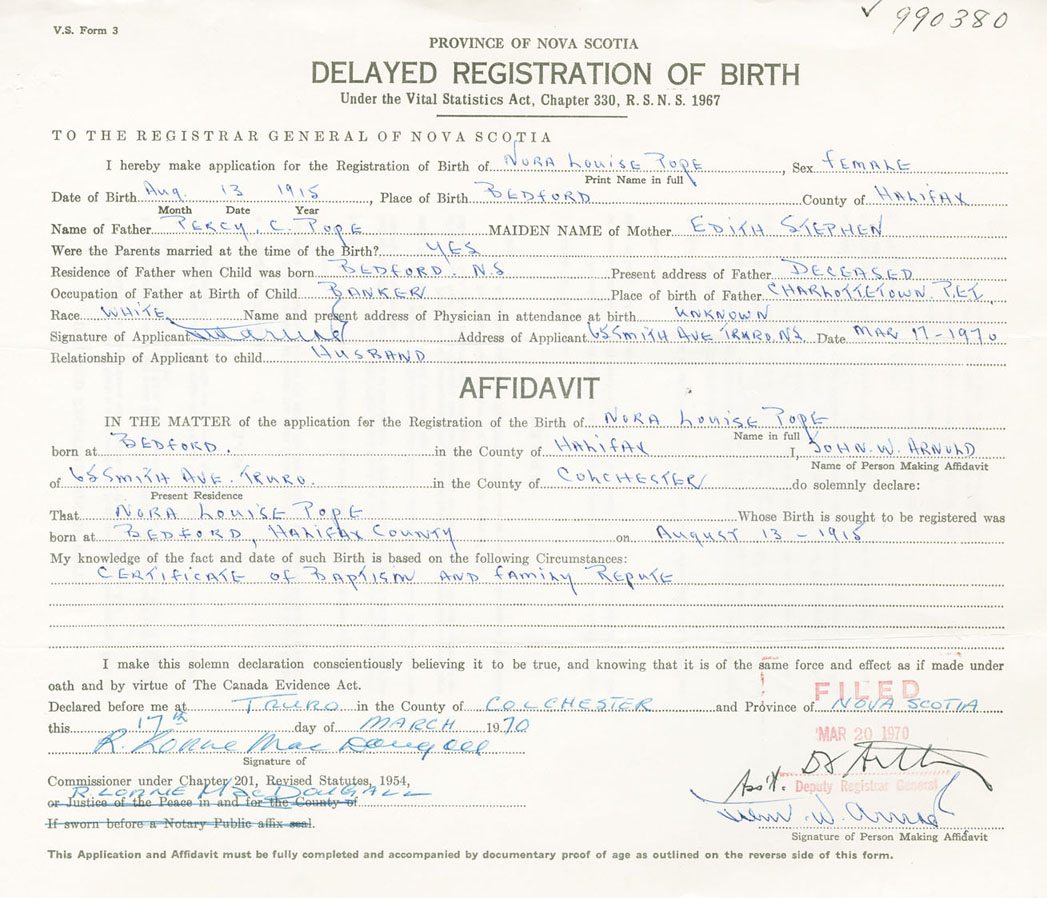 V.S. Form 3
✓ 990380
PROVINCE OF NOVA SCOTIA
DELAYED REGISTRATION OF BIRTH
Under the Vital Statistics Act, Chapter 330, R. S. N. S. 1967
TO THE REGISTRAR GENERAL OF NOVA SCOTIA
I hereby make application for the Registration of Birth of NORA LOUISE POPE, Sex FEMALE
Print Name in full
Date of Birth Aug. 13 1915, Place of Birth BEDFORD County of HALIFAX
Month Date Year
Name of Father PERCY. C. POPE MAIDEN NAME of Mother EDITH STEPHEN
Were the Parents married at the time of the Birth? YES
Residence of Father when Child was born BEDFORD. N.S Present address of Father DECEASED
Occupation of Father at Birth of Child BANKER Place of birth of Father CHARLOTTETOWN. P.E.I.
Race WHITE Name and present address of Physician in attendance at birth UNKNOWN
Signature of Applicant Address of Applicant 65 SMITH AVE TRURO. N.S. Date MAR 17-1970
Relationship of Applicant to child HUSBAND
AFFIDAVIT
IN THE MATTER of the application for the Registration of the Birth of NORA LOUISE POPE
Name in full
born at BEDFORD. in the County of HALIFAX I, JOHN. W. ARNOLD
Name of Person Making Affidavit
of 65 SMITH AVE. TRURO. in the County of COLCHESTER do solemnly declare:
Present Residence
That NORA LOUISE POPE Whose Birth is sought to be registered was
born at BEDFORD, HALIFAX COUNTY on AUGUST 13 - 1915
My knowledge of the fact and date of such Birth is based on the following Circumstances:
CERTIFICATE OF BAPTISM AND FAMILY REPUTE
I make this solemn declaration conscientiously believing it to be true, and knowing that it is of the same force and effect as if made under
oath and by virtue of The Canada Evidence Act.
Declared before me at TRURO in the County of COLCHESTER and Province of NOVA SCOTIA
FILED
this 17th day of MARCH 1970
MAR 20 1970
R. Lorne MacDougall
Signature of
Commissioner under Chapter 201, Revised Statutes, 1954,
R. LORNE MACDOUGALL
Ass't. Deputy Registrar General
or Justice of the Peace in and for the County of
If sworn before a Notary Public affix seal.
W. Arnold
Signature of Person Making Affidavit
This Application and Affidavit must be fully completed and accompanied by documentary proof of age as outlined on the reverse side of this form.